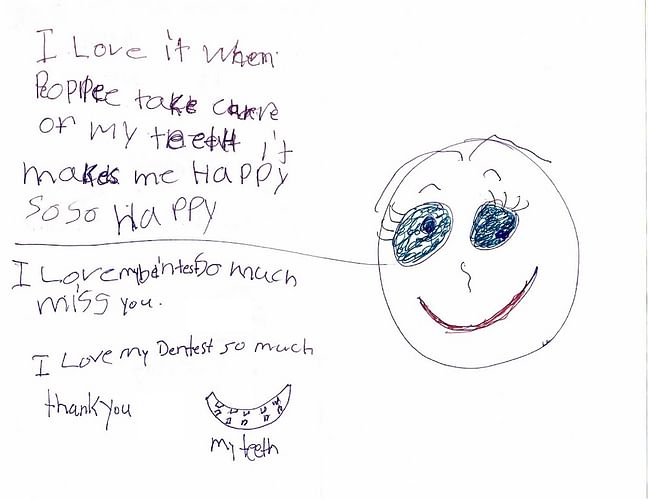 I Love it when
Peopple take care
of my teeth it
makes me Happy
so so Happy
I Love my Dentest so much
miss you.
I Love my Dentest so much
thank you
my teeth